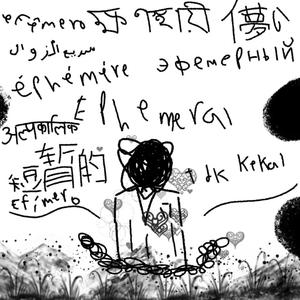 efémero ক্ষণস্থায়ী 儚い
سريع الزوال
éphémére эфемерный
Ephemeral
अल्पकालिक
暫的
tdk kekal
Efímero